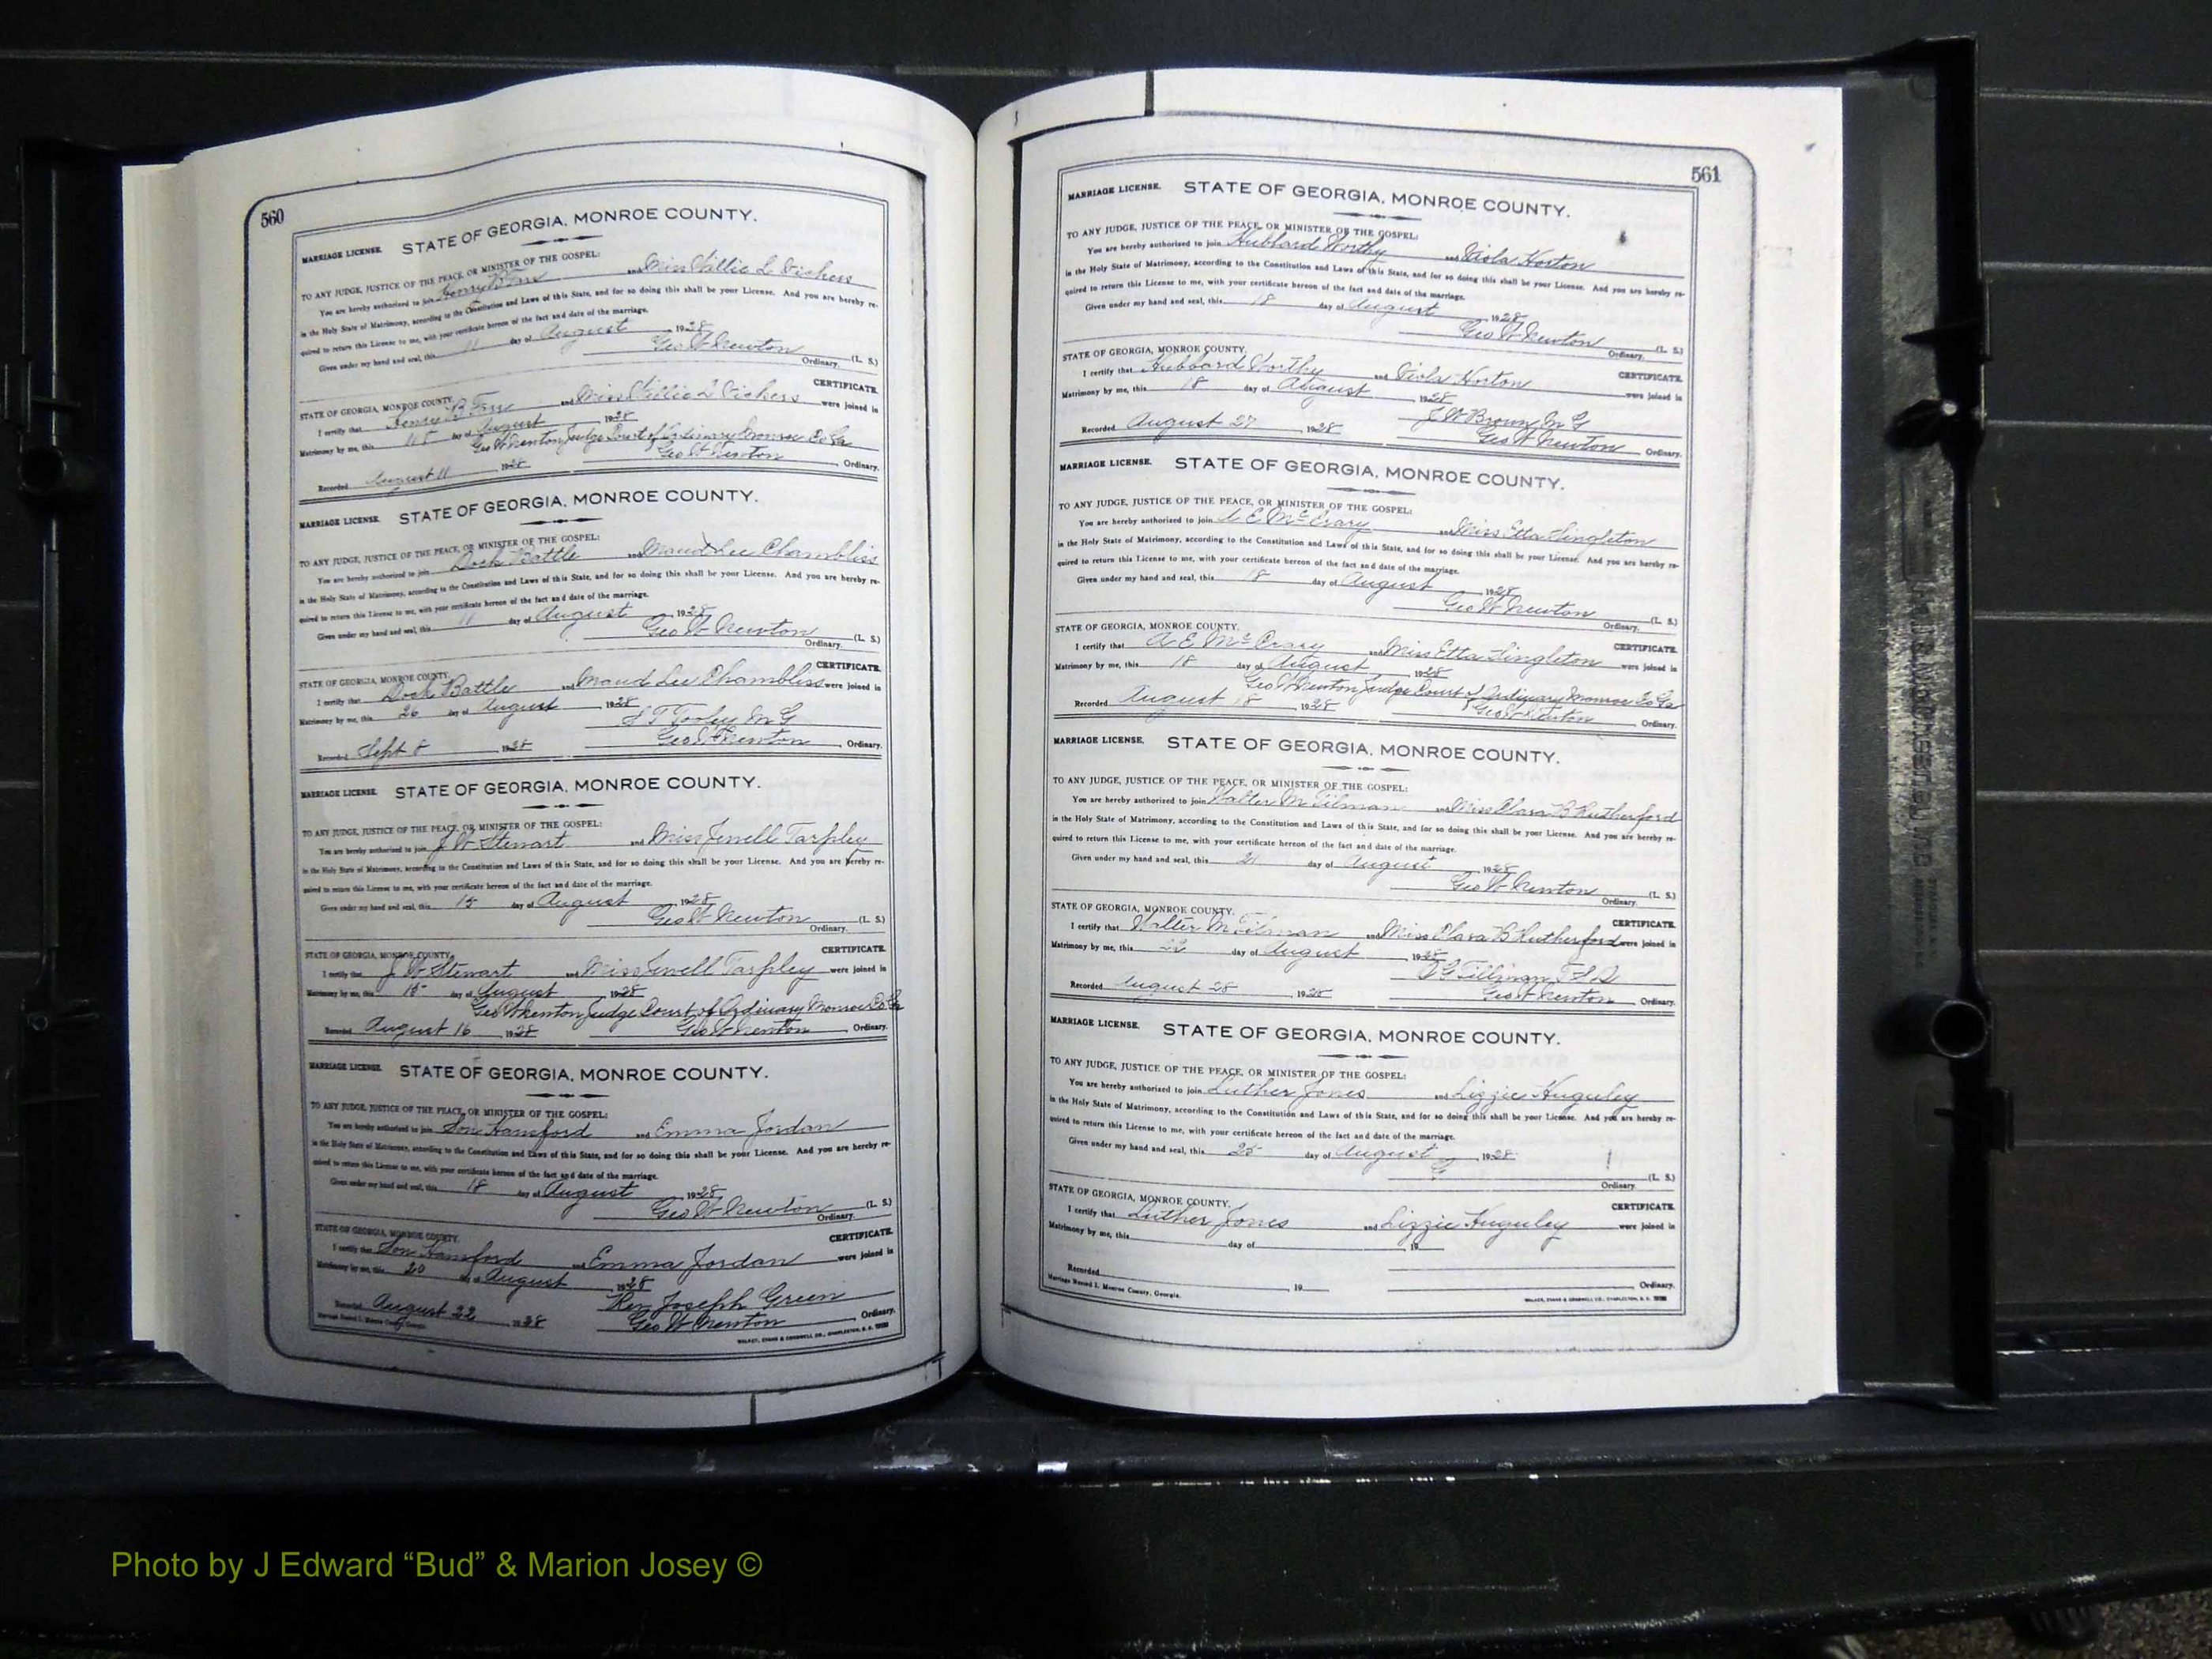 560
MARRIAGE LICENSE. STATE OF GEORGIA, MONROE COUNTY.
TO ANY JUDGE, JUSTICE OF THE PEACE, OR MINISTER OF THE GOSPEL:
You are hereby authorized to join Henry B and Miss Willie L Vickers
in the Holy State of Matrimony, according to the Constitution and Laws of this State, and for so doing this shall be your License. And you are hereby re-
quired to return this License to me, with your certificate hereon of the fact and date of the marriage.
Given under my hand and seal, this 11 day of August 1928
Geo W Newton (L. S.)
Ordinary.
STATE OF GEORGIA, MONROE COUNTY. CERTIFICATE.
I certify that Henry B and Miss Willie L Vickers were joined in
Matrimony by me, this day of August 1928
Geo W Newton Judge Court of Ordinary Monroe Co Ga
Recorded August 11 1928 Geo W Newton Ordinary.
MARRIAGE LICENSE. STATE OF GEORGIA, MONROE COUNTY.
TO ANY JUDGE, JUSTICE OF THE PEACE, OR MINISTER OF THE GOSPEL:
You are hereby authorized to join Dock Battle and Maud Lee Chambliss
in the Holy State of Matrimony, according to the Constitution and Laws of this State, and for so doing this shall be your License. And you are hereby re-
quired to return this License to me, with your certificate hereon of the fact and date of the marriage.
Given under my hand and seal, this 11 day of August 1928
Geo W Newton (L. S.)
Ordinary.
STATE OF GEORGIA, MONROE COUNTY. CERTIFICATE.
I certify that Dock Battle and Maud Lee Chambliss were joined in
Matrimony by me, this 26 day of August 1928
S T M G
Recorded Sept 8 1928 Geo W Newton Ordinary.
MARRIAGE LICENSE. STATE OF GEORGIA, MONROE COUNTY.
TO ANY JUDGE, JUSTICE OF THE PEACE, OR MINISTER OF THE GOSPEL:
You are hereby authorized to join J W Stewart and Miss Jewell Tarpley
in the Holy State of Matrimony, according to the Constitution and Laws of this State, and for so doing this shall be your License. And you are hereby re-
quired to return this License to me, with your certificate hereon of the fact and date of the marriage.
Given under my hand and seal, this 15 day of August 1928
Geo W Newton (L. S.)
Ordinary.
STATE OF GEORGIA, MONROE COUNTY. CERTIFICATE.
I certify that J W Stewart and Miss Jewell Tarpley were joined in
Matrimony by me, this 15 day of August 1928
Geo W Newton Judge Court of Ordinary Monroe Co Ga
Recorded August 16 1928 Geo W Newton Ordinary.
MARRIAGE LICENSE. STATE OF GEORGIA, MONROE COUNTY.
TO ANY JUDGE, JUSTICE OF THE PEACE, OR MINISTER OF THE GOSPEL:
You are hereby authorized to join Son Hansford and Emma Jordan
in the Holy State of Matrimony, according to the Constitution and Laws of this State, and for so doing this shall be your License. And you are hereby re-
quired to return this License to me, with your certificate hereon of the fact and date of the marriage.
Given under my hand and seal, this 18 day of August 1928
Geo W Newton (L. S.)
Ordinary.
STATE OF GEORGIA, MONROE COUNTY. CERTIFICATE.
I certify that Son Hansford and Emma Jordan were joined in
Matrimony by me, this 20 day of August 1928
Rev Joseph Green
Recorded August 22 1928 Geo W Newton Ordinary.
Marriage Record I. Monroe County, Georgia.
WALKER, EVANS & COGSWELL CO., CHARLESTON, S. C.
561
MARRIAGE LICENSE. STATE OF GEORGIA, MONROE COUNTY.
TO ANY JUDGE, JUSTICE OF THE PEACE, OR MINISTER OF THE GOSPEL:
You are hereby authorized to join Hubbard Worthy and Viola Horton
in the Holy State of Matrimony, according to the Constitution and Laws of this State, and for so doing this shall be your License. And you are hereby re-
quired to return this License to me, with your certificate hereon of the fact and date of the marriage.
Given under my hand and seal, this 18 day of August 1928
Geo W Newton (L. S.)
Ordinary.
STATE OF GEORGIA, MONROE COUNTY. CERTIFICATE.
I certify that Hubbard Worthy and Viola Horton were joined in
Matrimony by me, this 18 day of August 1928
J W Brown M G
Recorded August 27 1928 Geo W Newton Ordinary.
MARRIAGE LICENSE. STATE OF GEORGIA, MONROE COUNTY.
TO ANY JUDGE, JUSTICE OF THE PEACE, OR MINISTER OF THE GOSPEL:
You are hereby authorized to join A E McCrary and Miss Etta Singleton
in the Holy State of Matrimony, according to the Constitution and Laws of this State, and for so doing this shall be your License. And you are hereby re-
quired to return this License to me, with your certificate hereon of the fact and date of the marriage.
Given under my hand and seal, this 18 day of August 1928
Geo W Newton (L. S.)
Ordinary.
STATE OF GEORGIA, MONROE COUNTY. CERTIFICATE.
I certify that A E McCrary and Miss Etta Singleton were joined in
Matrimony by me, this 18 day of August 1928
Geo W Newton Judge Court of Ordinary Monroe Co Ga
Recorded August 18 1928 Geo W Newton Ordinary.
MARRIAGE LICENSE. STATE OF GEORGIA, MONROE COUNTY.
TO ANY JUDGE, JUSTICE OF THE PEACE, OR MINISTER OF THE GOSPEL:
You are hereby authorized to join Walter M Tilman and Miss Clara B Rutherford
in the Holy State of Matrimony, according to the Constitution and Laws of this State, and for so doing this shall be your License. And you are hereby re-
quired to return this License to me, with your certificate hereon of the fact and date of the marriage.
Given under my hand and seal, this 21 day of August 1928
Geo W Newton (L. S.)
Ordinary.
STATE OF GEORGIA, MONROE COUNTY. CERTIFICATE.
I certify that Walter M Tilman and Miss Clara B Rutherford were joined in
Matrimony by me, this 22 day of August 1928
G Tillman
Recorded August 28 1928 Geo W Newton Ordinary.
MARRIAGE LICENSE. STATE OF GEORGIA, MONROE COUNTY.
TO ANY JUDGE, JUSTICE OF THE PEACE, OR MINISTER OF THE GOSPEL:
You are hereby authorized to join Luther Jones and Lizzie Huguley
in the Holy State of Matrimony, according to the Constitution and Laws of this State, and for so doing this shall be your License. And you are hereby re-
quired to return this License to me, with your certificate hereon of the fact and date of the marriage.
Given under my hand and seal, this 25 day of August 1928
G (L. S.)
Ordinary.
STATE OF GEORGIA, MONROE COUNTY. CERTIFICATE.
I certify that Luther Jones and Lizzie Huguley were joined in
Matrimony by me, this day of 19
Recorded 19 Ordinary.
Marriage Record I. Monroe County, Georgia.
WALKER, EVANS & COGSWELL CO., CHARLESTON, S. C.
Photo by J Edward “Bud” & Marion Josey ©